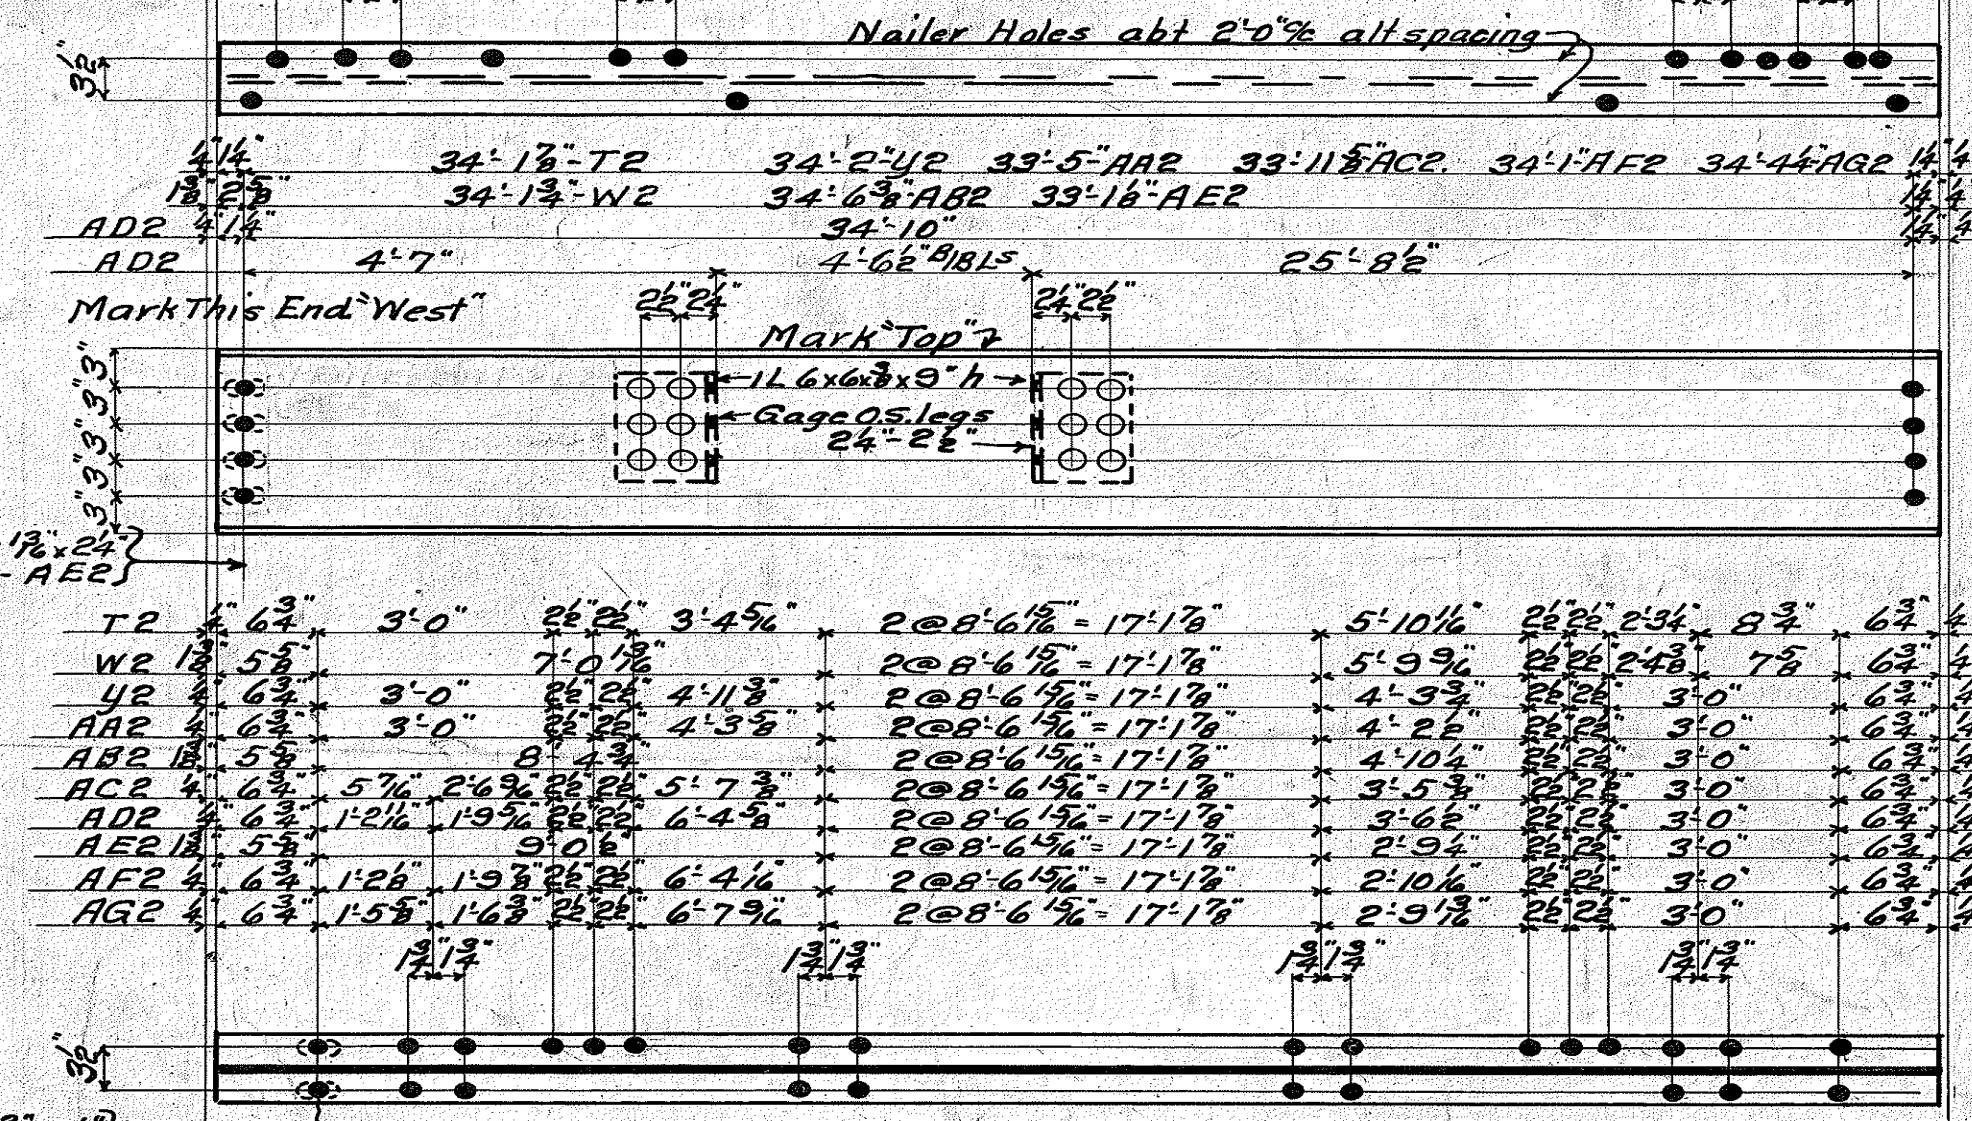 Nailer Holes abt 2'-0" c/c alt spacing
3 1/2"
1/4" 1 1/4" 34'-1 7/8"-T2 34'-2"-Y2 33'-5"-AA2 33'-11 5/8"-AC2. 34'-1"-AF2 34'-4 1/4"-AG2 1 1/4" 1/4"
1 3/8" 2 5/8" 34'-1 3/4"-W2 34'-6 3/8"-AB2 33'-1 1/8"-AE2 1 1/4" 1/4"
AD2 1/4" 1 1/4" 34'-10" 1 1/4" 1/4"
AD2 4'-7" 4'-6 1/2" B/BLs 25'-8 1/2"
Mark This End "West" 2 1/2" 2 1/4" 2 1/4" 2 1/2"
Mark "Top"
3" 3" 3" 3" 3"
1L 6x6x3/8x9" h
Gage O.S. legs
2 1/4"-2 1/2"
13/16" x 2 1/4"
- AE2
T2 1/4" 6 3/4" 3'-0" 2 1/2" 2 1/2" 3'-4 5/16" 2@8'-6 15/16" = 17'-1 7/8" 5'-10 1/16" 2 1/2" 2 1/2" 2'-3 1/4" 8 3/4" 6 3/4" 1/4
W2 1 3/8" 5 5/8" 7'-0 13/16" 2@8'-6 15/16" = 17'-1 7/8" 5'-9 9/16" 2 1/2" 2 1/2" 2'-4 3/8" 7 5/8" 6 3/4" 1/4
Y2 1/4" 6 3/4" 3'-0" 2 1/2" 2 1/2" 4'-11 3/8" 2@8'-6 15/16" = 17'-1 7/8" 4'-3 3/4" 2 1/2" 2 1/2" 3'-0" 6 3/4" 1/4
AA2 1/4" 6 3/4" 3'-0" 2 1/2" 2 1/2" 4'-3 5/8" 2@8'-6 15/16" = 17'-1 7/8" 4'-2 1/2" 2 1/2" 2 1/2" 3'-0" 6 3/4" 1/4
AB2 1 3/8" 5 5/8" 8'-4 3/4" 2@8'-6 15/16" = 17'-1 7/8" 4'-10 1/4" 2 1/2" 2 1/2" 3'-0" 6 3/4" 1/4
AC2 1/4" 6 3/4" 5 7/16" 2'-6 9/16" 2 1/2" 2 1/2" 5'-7 3/8" 2@8'-6 15/16" = 17'-1 7/8" 3'-5 3/8" 2 1/2" 2 1/2" 3'-0" 6 3/4" 1/4
AD2 1/4" 6 3/4" 1'-2 11/16" 1'-9 5/16" 2 1/2" 2 1/2" 6'-4 5/8" 2@8'-6 15/16" = 17'-1 7/8" 3'-6 1/2" 2 1/2" 2 1/2" 3'-0" 6 3/4" 1/4
AE2 1 3/8" 5 5/8" 9'-0 1/2" 2@8'-6 15/16" = 17'-1 7/8" 2'-9 1/4" 2 1/2" 2 1/2" 3'-0" 6 3/4" 1/4
AF2 1/4" 6 3/4" 1'-2 1/8" 1'-9 7/8" 2 1/2" 2 1/2" 6'-4 1/16" 2@8'-6 15/16" = 17'-1 7/8" 2'-10 1/16" 2 1/2" 2 1/2" 3'-0" 6 3/4" 1/4
AG2 1/4" 6 3/4" 1'-5 5/8" 1'-6 3/8" 2 1/2" 2 1/2" 6'-7 9/16" 2@8'-6 15/16" = 17'-1 7/8" 2'-9 13/16" 2 1/2" 2 1/2" 3'-0" 6 3/4" 1/4
1 3/4" 1 3/4" 1 3/4" 1 3/4" 1 3/4" 1 3/4" 1 3/4" 1 3/4"
3 1/2"